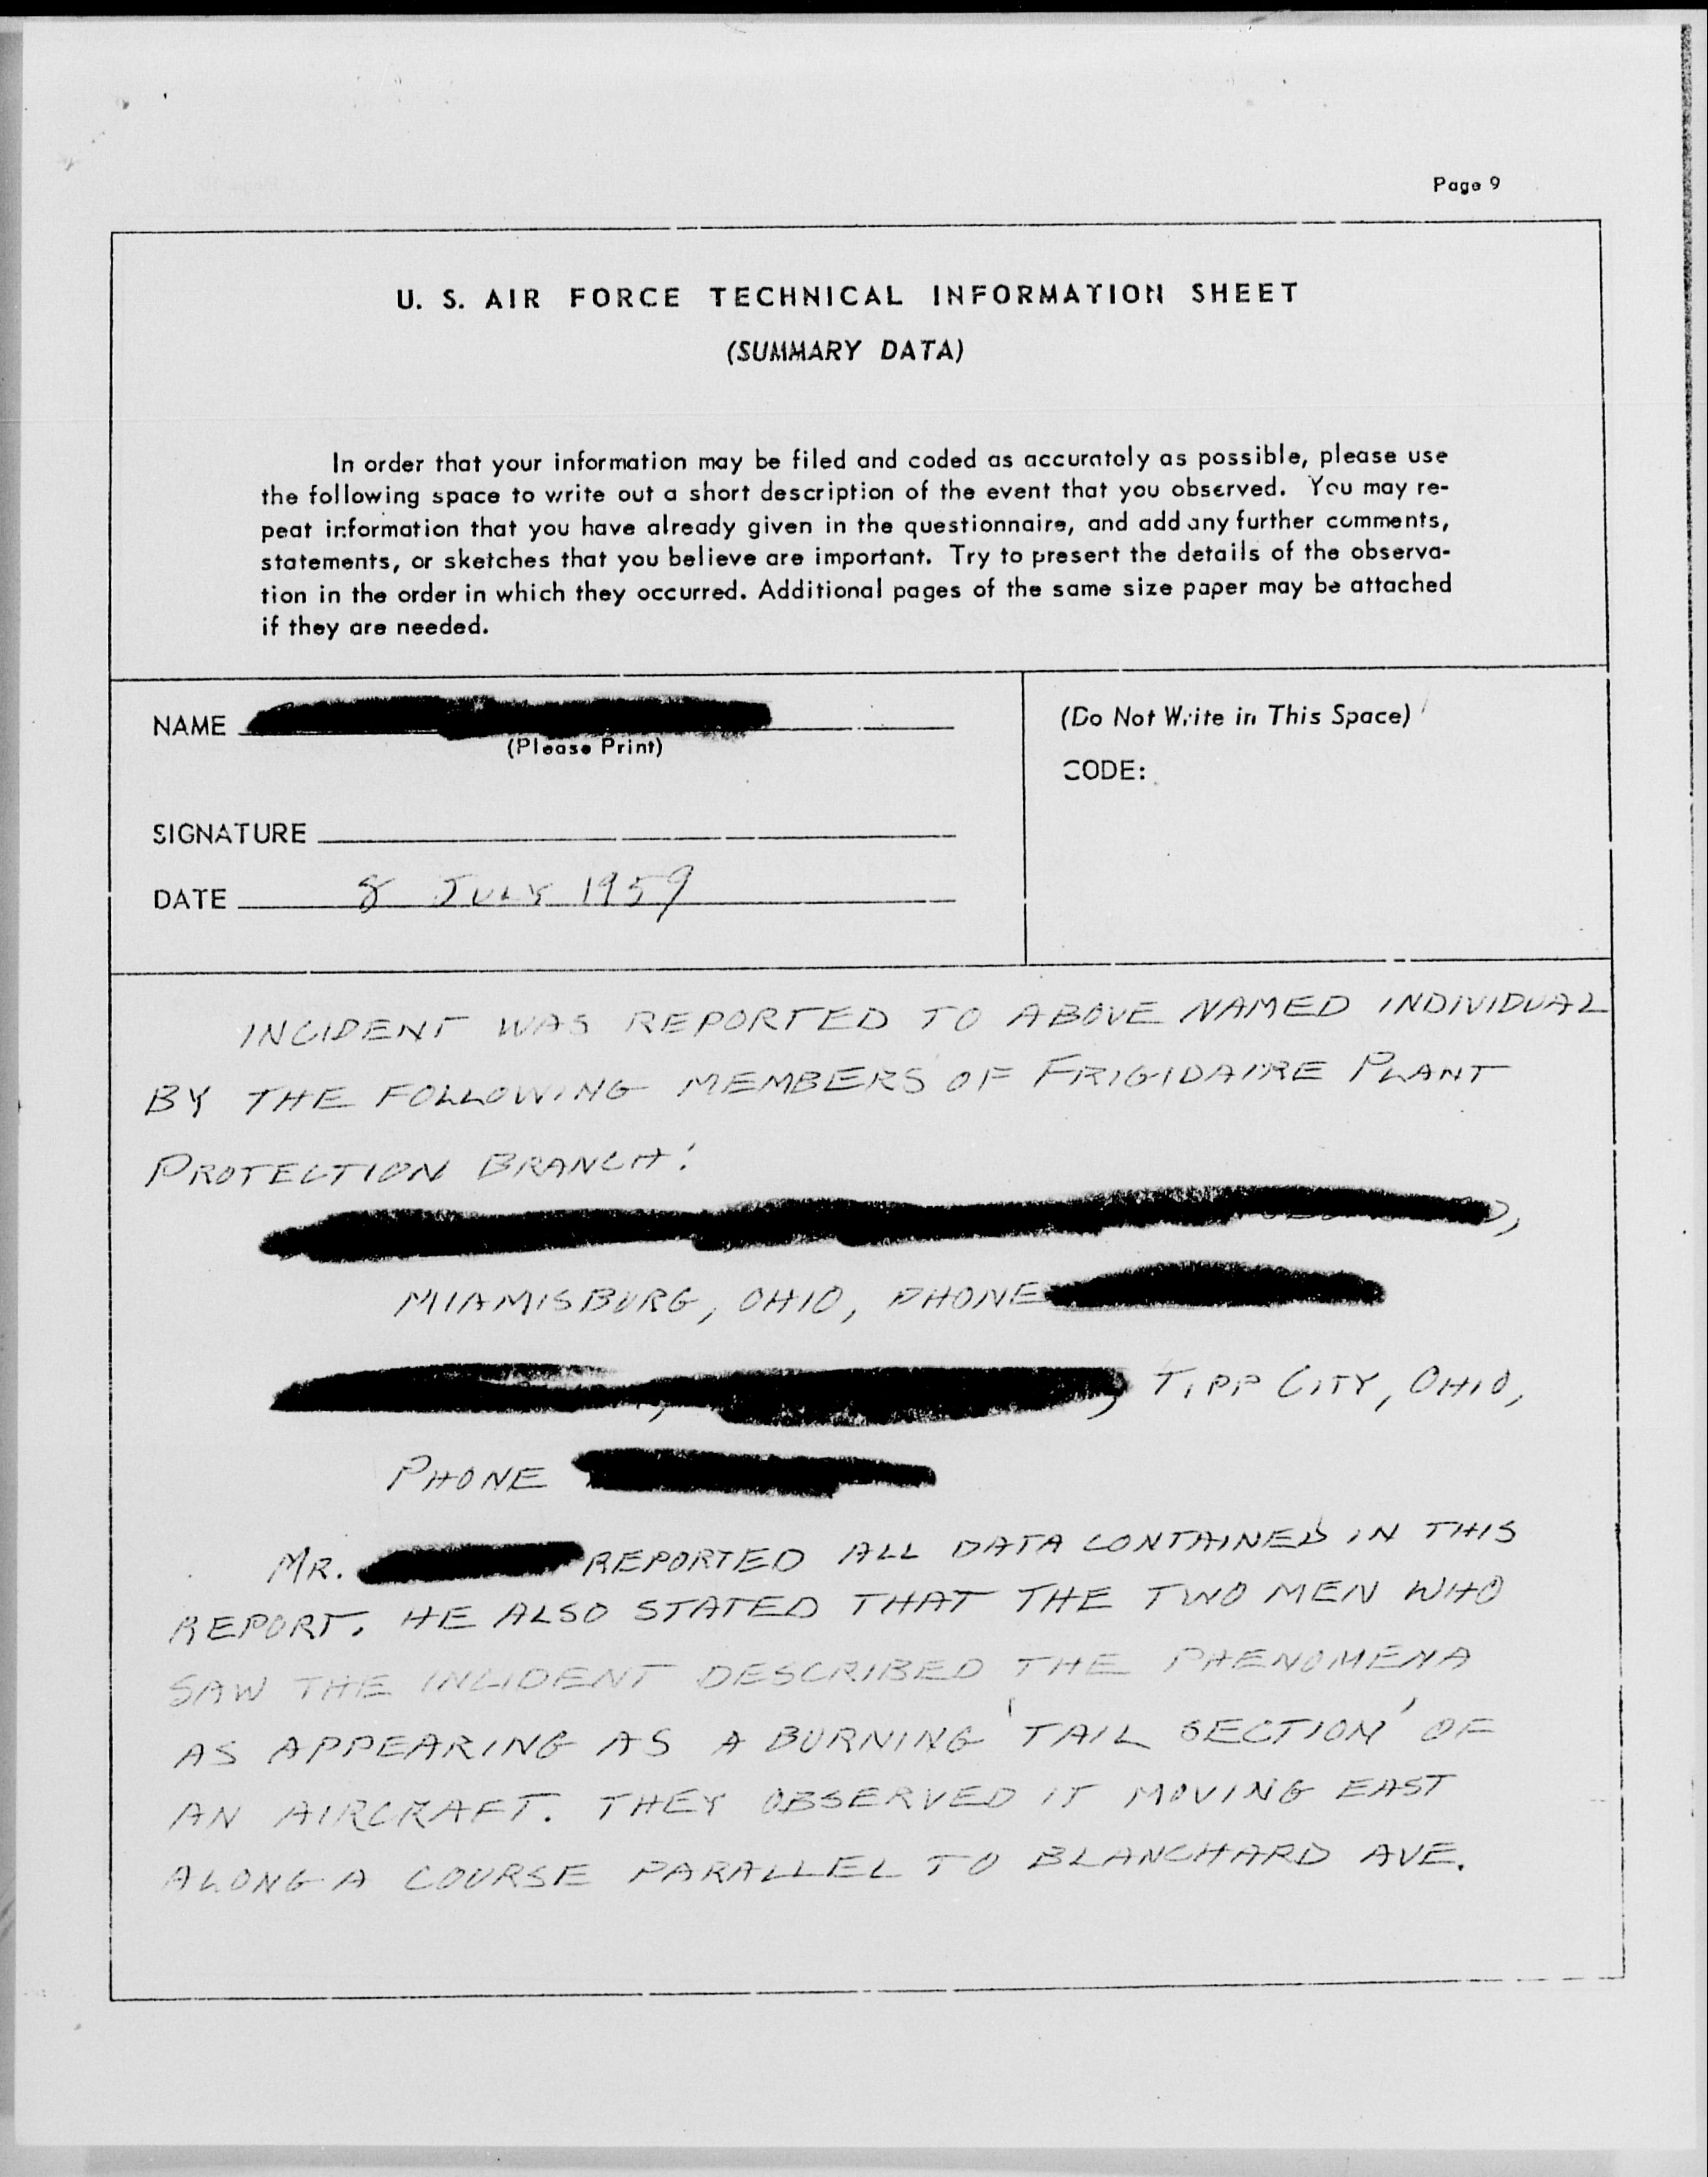 Page 9
U. S. AIR FORCE TECHNICAL INFORMATION SHEET
(SUMMARY DATA)
In order that your information may be filed and coded as accurately as possible, please use
the following space to write out a short description of the event that you observed. You may re-
peat information that you have already given in the questionnaire, and add any further comments,
statements, or sketches that you believe are important. Try to present the details of the observa-
tion in the order in which they occurred. Additional pages of the same size paper may be attached
if they are needed.
NAME
(Please Print)
SIGNATURE
DATE 8 JULY 1959
(Do Not Write in This Space)
CODE:
INCIDENT WAS REPORTED TO ABOVE NAMED INDIVIDUAL
BY THE FOLLOWING MEMBERS OF FRIGIDAIRE PLANT
PROTECTION BRANCH:
MIAMISBURG, OHIO, PHONE
, TIPP CITY, OHIO,
PHONE
MR. REPORTED ALL DATA CONTAINED IN THIS
REPORT. HE ALSO STATED THAT THE TWO MEN WHO
SAW THE INCIDENT DESCRIBED THE PHENOMENA
AS APPEARING AS A BURNING 'TAIL SECTION' OF
AN AIRCRAFT. THEY OBSERVED IT MOVING EAST
ALONG A COURSE PARALLEL TO BLANCHARD AVE.